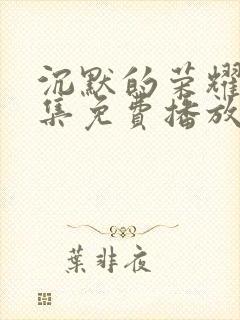 沉默的荣耀
集免費播放
葉非夜